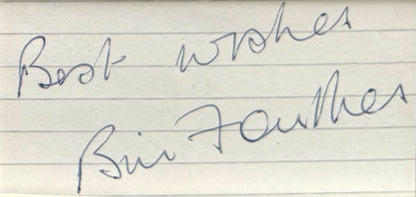 Best wishes
Bill Foulkes